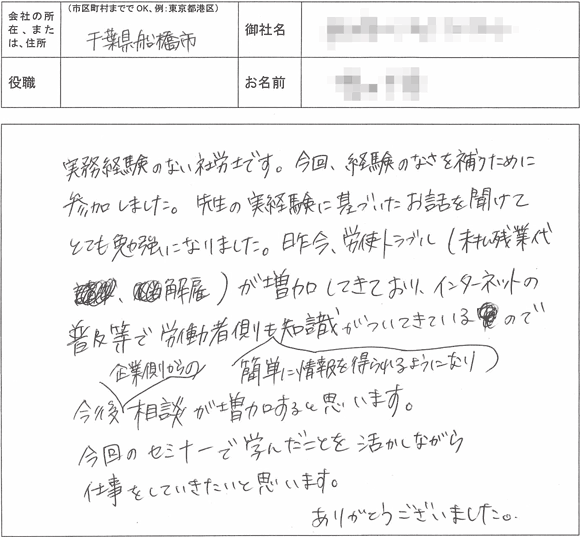 会社の所在、または、住所
(市区町村まででOK、例:東京都港区)
千葉県船橋市
御社名
役職
お名前
実務経験のない社労士です。今回、経験のなさを補うために
参加しました。先生の実経験に基づいたお話を聞けて
とても勉強になりました。昨今、労使トラブル(未払残業代
、解雇)が増加してきており、インターネットの
普及等で労働者側も知識がついてきているので
企業側からの 簡単に情報を得られるようになり
今後相談が増加すると思います。
今回のセミナーで学んだことを活かしながら
仕事をしていきたいと思います。
ありがとうございました。